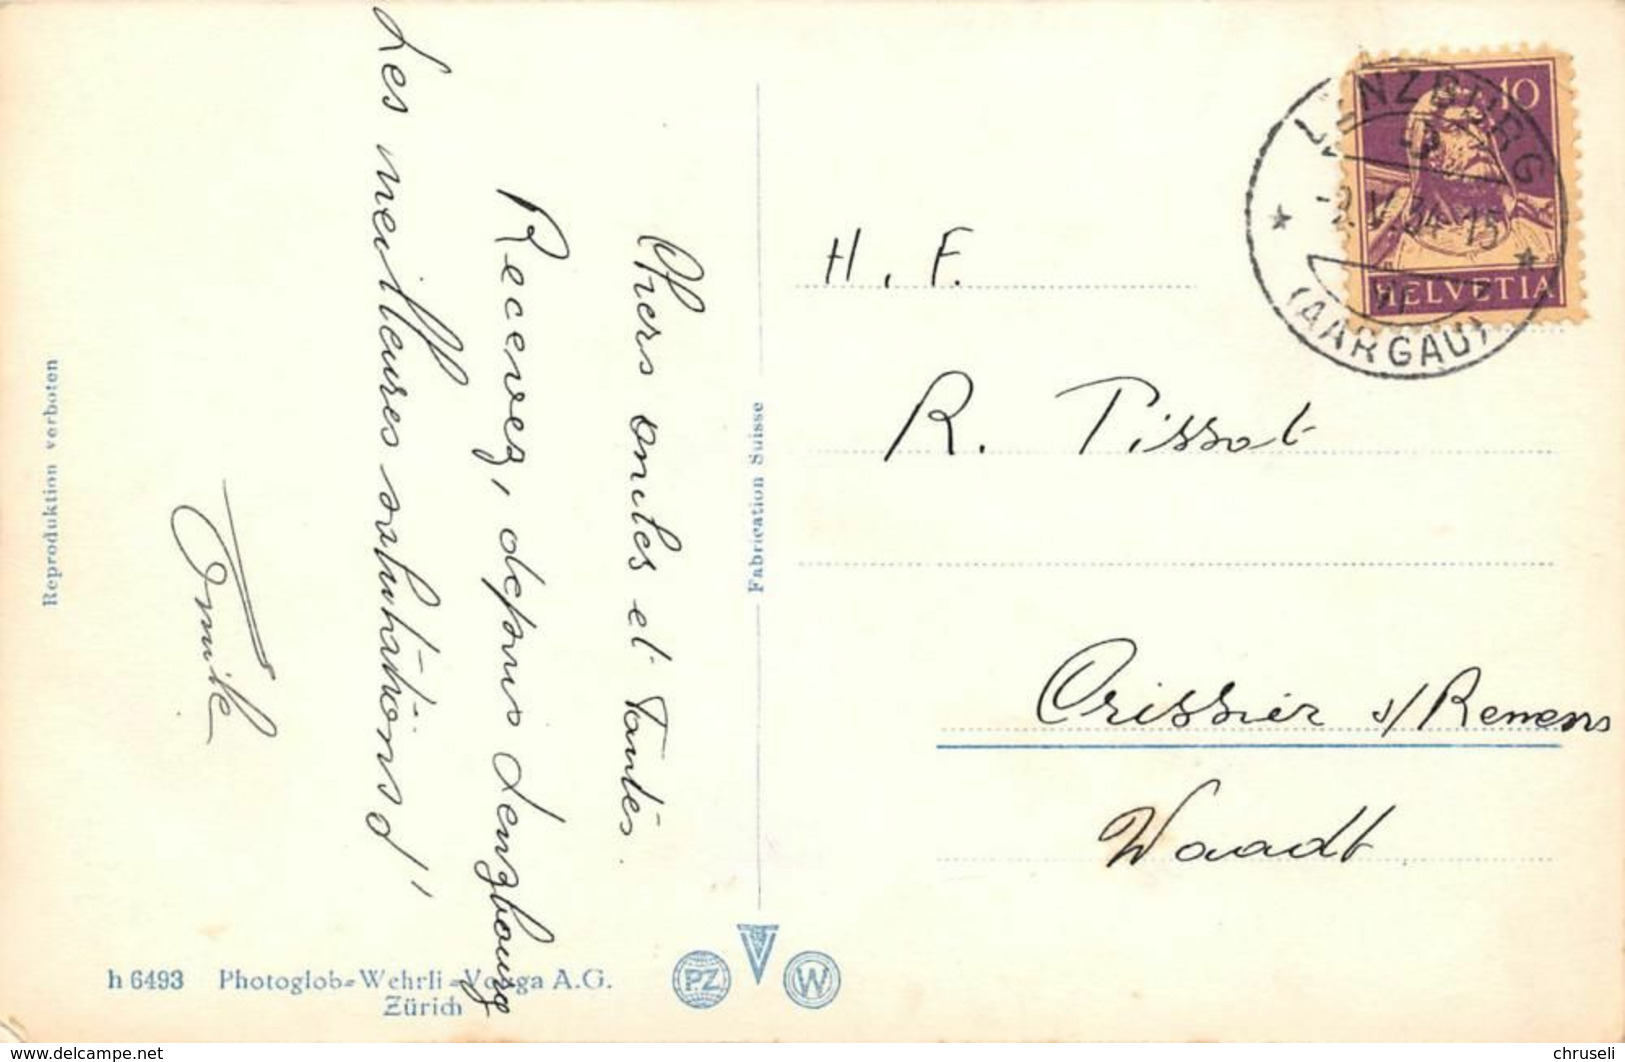 Chers oncles et Tantes.
Recevez, depuis Lenzbourg
Les meilleures salutations d'
Emile
Reproduktion verboten
Fabrication Suisse
h 6493 Photoglob-Wehrli-Vouga A.G.
Zürich
PZ
W
10
HELVETIA
LENZBURG
-2.V.34-15
(AARGAU)
H. F.
R. Tissot
Crissier s/Renens
Waadt
www.delcampe.net
chruseli